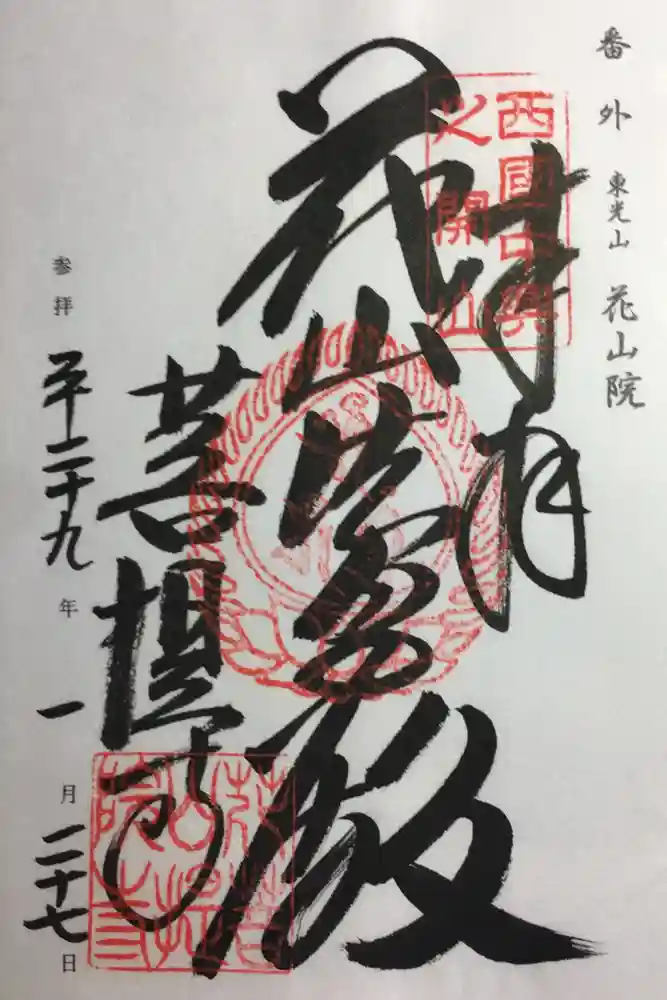 番外 東光山 花山院
西國中興
之開山
花山法皇殿
菩提寺
花山院
菩提寺
参拝 平二十九年一月二十七日